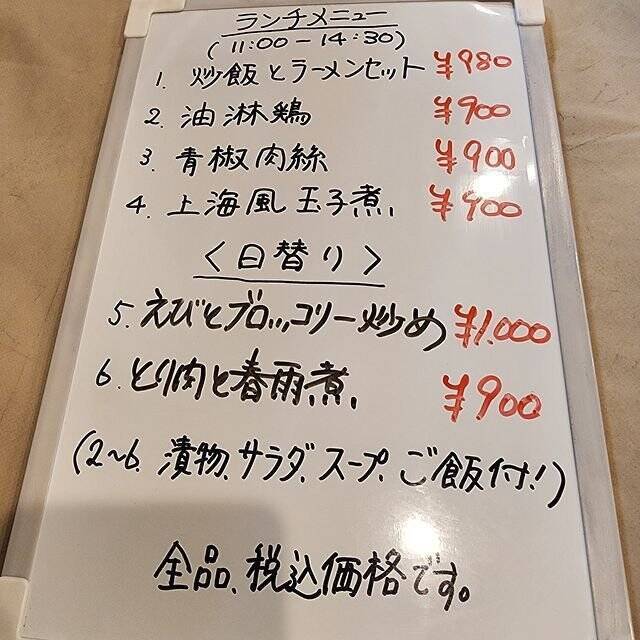 ランチメニュー
(11:00-14:30)
1. 炒飯とラーメンセット ¥980
2. 油淋鶏 ¥900
3. 青椒肉絲 ¥900
4. 上海風玉子煮 ¥900
<日替り>
5. えびとブロッコリー炒め ¥1.000
6. とり肉と春雨煮 ¥900
(2~6. 漬物、サラダ、スープ、ご飯付!)
全品、税込価格です。